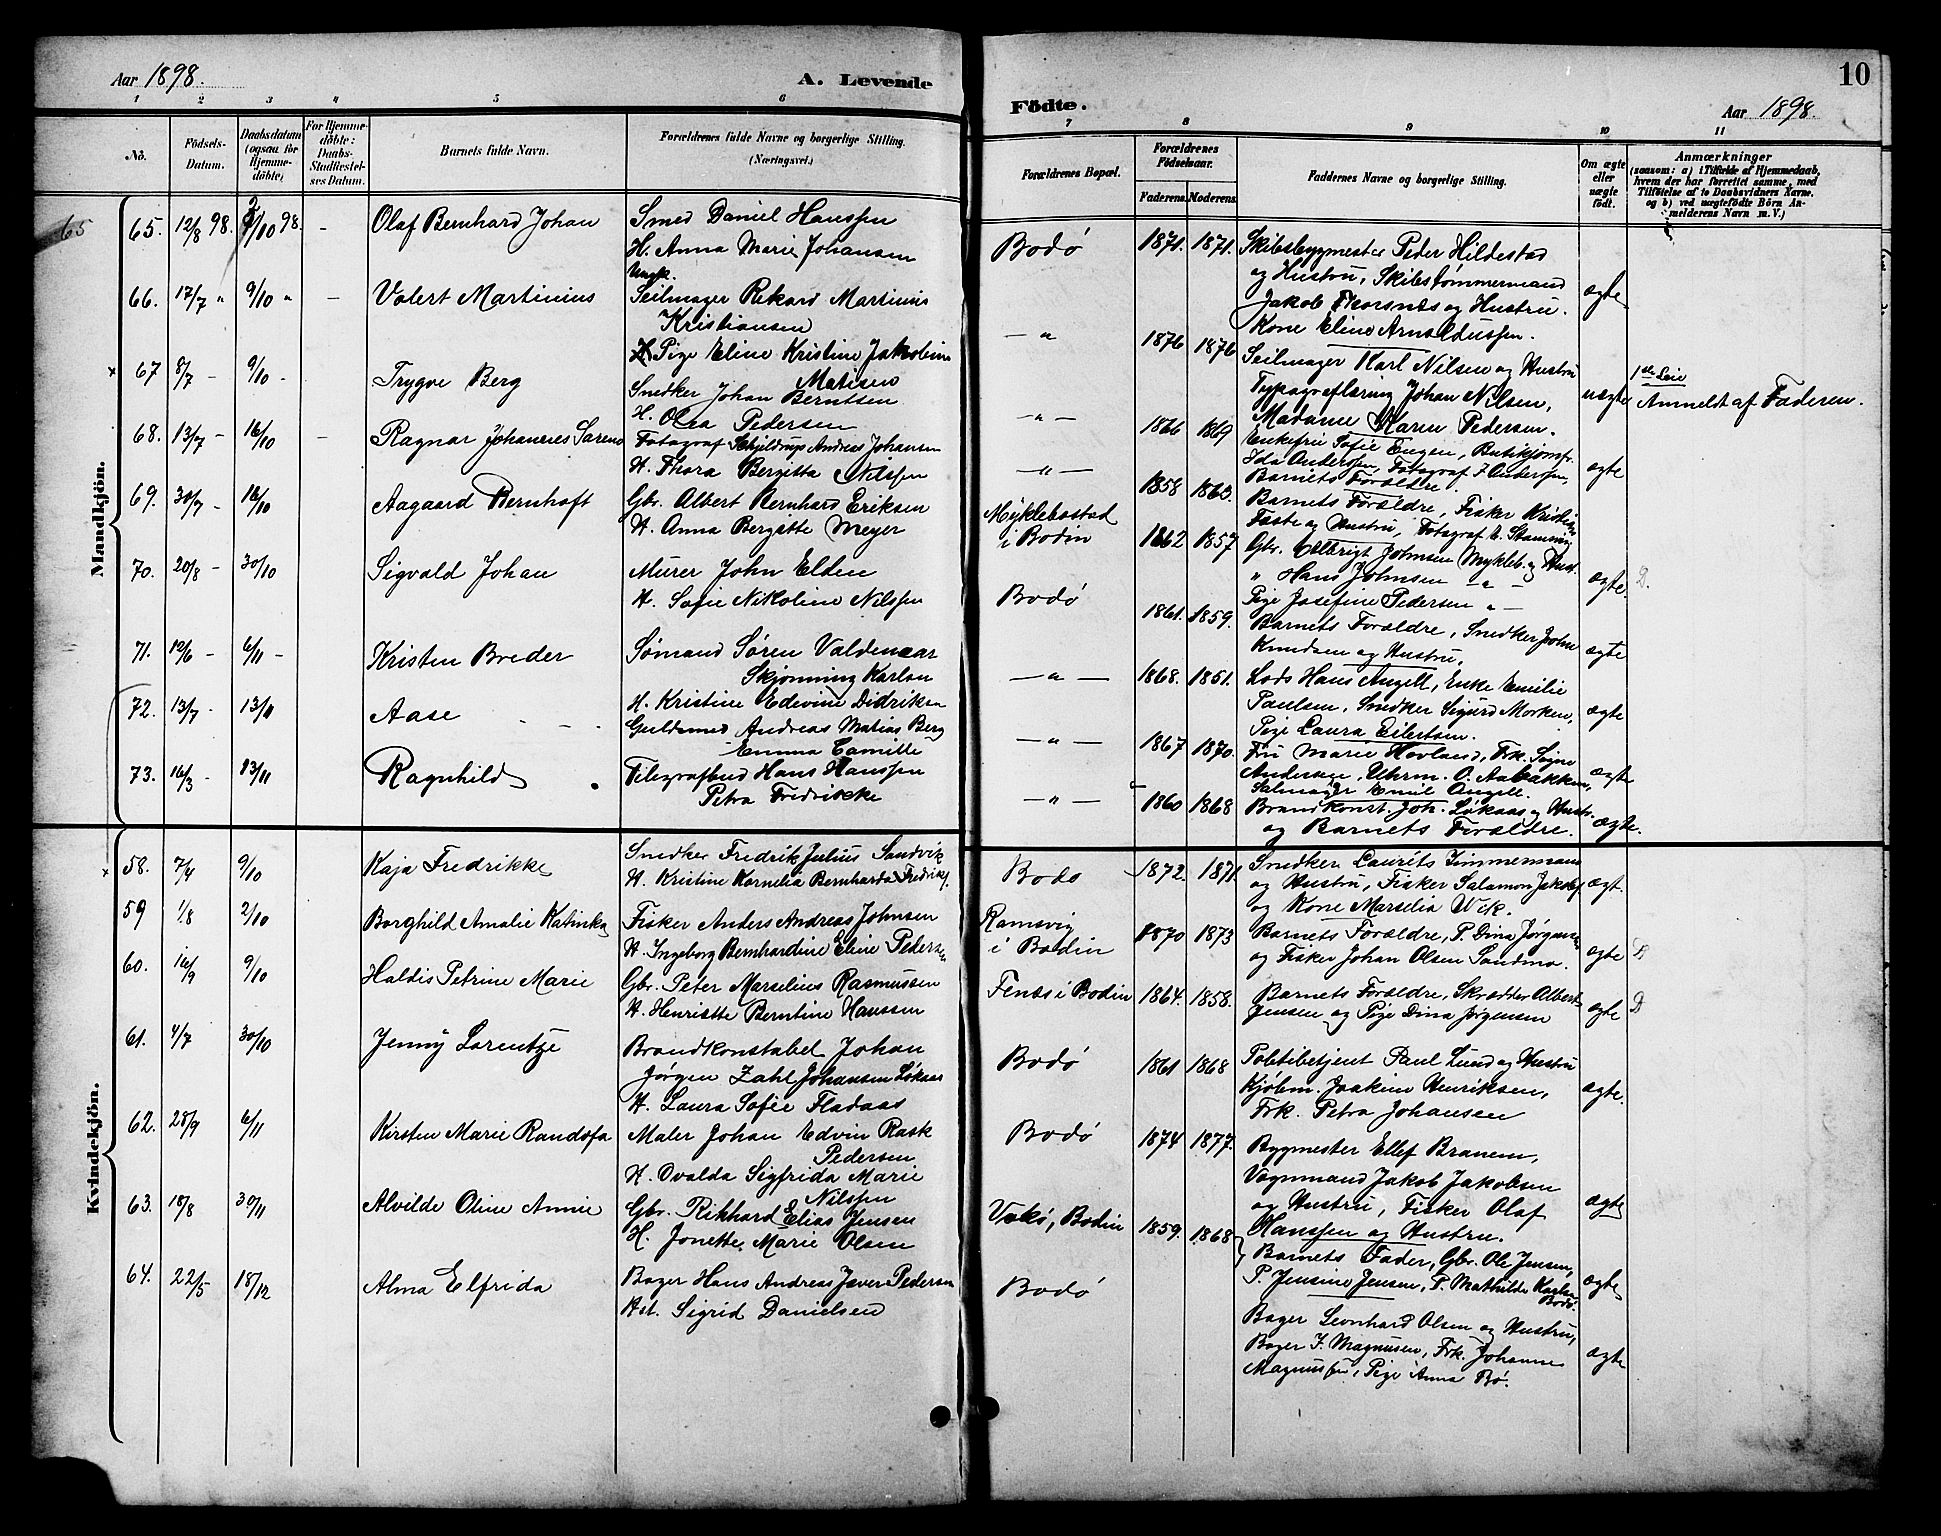 Aar 1898.
A. Levende
1 2 3 4 5 6
No.
Födsels-
Datum.
Daabsdatum
(ogsaa for
Hjemme-
döbte)
For Hjemme-
döbte:
Daabs-
Stadfestel-
ses Datum.
Barnets fulde Navn.
Forældrenes fulde Navne og borgerlige Stilling.
(Næringsvei.)
Mandkjön.
65
65. 12/8 98. 2/10 98. - Olaf Bernhard Johan Smed Daniel Hanssen
H. Anna Marie Johansen
Ungk.
66. 17/7 " 9/10 " - Valert Martinius Seilmager Rikard Martinius
Kristiansen
Pige Eline Kristine Jakobine
Matisen
67 8/7 - 9/10 - Trygve Berg Snedker Johan Berntsen
H. Olea Pedersen
68. 13/7 - 16/10 - Ragnar Johannes Sarenus Fotograf Schjeldrup Andreas Johansen
H. Thora Bergitta Nilssen
69. 30/7 - 16/10 Aagaard Bernhoft Gbr. Albert Bernhard Eriksen
H. Anna Bergitte Meyer
70. 20/8 - 30/10 Sigvald Johan Murer John Elden
H. Sofie Nikoline Nilssen
71. 12/6 - 6/11 - Kristen Breder Sømand Søren Valdemar
Skjønning Karlsen
H. Kristine Edevine Didriksen
72. 13/7 - 13/11 Aase Guldsmed Andreas Matias Berg
Emma Camille
73. 16/3 - 13/11 Ragnhild Telegrafbud Hans Hanssen
Petra Fredrikke
Kvindekjön.
58. 7/4 9/10 Kaja Fredrikke Snedker Fredrik Julius Sandvik
H. Kristine Kornelia Bernharda Fredriks.
59 1/8 2/10 Borghild Amalie Katinka Fisker Anders Andreas Johnsen
H. Ingeborg Bernhardine Eline Pedersen
60. 16/9 9/10 Haldis Petrine Marie Gbr. Peter Marselius Rasmussen
H. Henriette Berntine Hanssen
61. 4/7 30/10 Jenny Lorentze Brandkonstabel Johan
Jørgen Zahl Johansen Løkaas
H. Laura Sofie Fladaas
62. 28/9 6/11 Kirsten Marie Randofa Maler Johan Edvin Rask
Pedersen
H. Ovalda Sigfrida Marie
Nilssen
63. 18/8 30/11 Alvilde Oline Annie Gbr. Rikhard Elias Jensen
H. Jonette Marie Olsen
64. 22/5 18/12 Alma Elfrida Bager Hans Andreas Jæver Pedersen
Hst. Sigrid Danielsen
10
Födte.
Aar 1898.
7 8 9 10 11
Forældrenes Bopæl.
Forældrenes
Födselsaar.
Faderens. Moderens.
Faddernes Navne og borgerlige Stilling.
Om ægte
eller
uægte
födt.
Anmærkninger
(saasom: a) i Tilfælde af Hjemmedaab,
hvem der har forrettet samme, med
Tilföielse af to Daabsvidners Navne.
og b) ved uægtefödte Börn An-
melderens Navn m. V.)
Bodø 1871. 1871. Skibsbygmester Peder Hildestad
og Hustru, Skibstømmermand
Jakob Thorsnes og Hustru.
Kone Eline Arnoldussen.
ægte
- " - 1876 1876 Seilmager Karl Nilsen og Hustru
Typografløring Johan Nilsen,
Madame Maren Pedersen.
uægte
1ste Leie
Anmeldt af Faderen.
- " - 1866 1869 Enkefru Sofie Engen, Butikjomfr.
Ida Anderssen, Fotograf J. Anderssen,
Barnets Forældre.
ægte
- " - 1858 1863. Barnets Forældre, Fisker Kristian
Faste og Hustru, Fotograf E.
Myklebostad
i Bodin 1862 1857 Gbr. Elbrigt Johnsen Mykleb. og Hust.
" Hans Johnsen - " -
Pige Josefine Pedersen " -
ægte. D.
Bodø 1861. 1859. Barnets Forældre, Snedker John
Knudsen og Hustru.
ægte
- " - 1868. 1851. Lods Hans Angell, Enke Emilie
Paulsen, Snedker Sigurd Morken,
Pige Laura Eilertsen.
ægte
- " - 1867 1870. Fru Marie Hovland, Frk. Signe
Andersen, Uhrm. O. Aabakken,
Salmager Emil Angell.
ægte
- " - 1860 1868 Brandkonst. Joh. Løkaas og Hustr.
og Barnets Forældre.
ægte.
Bodø 1872. 1871. Snedker Laurits Zimmermann
og Hustru, Fisker Salamon Jakobs.
og Kone Marselia Wik.
ægt.
Ramsvig
i Bodin 1870 1873 Barnets Forældre, P. Dina Jørgensen
og Fisker Johan Olsen Sandmo.
ægte D
Fenes i Bodin 1864. 1858. Barnets Forældre, Skrædder Albert
Jensen og Pige Dina Jørgensen
ægte D
Bodø 1861 1868 Politibetjent Paul Lund og Hustru
Kjøbm. Joakim Henriksen,
Frk. Petra Johansen
ægte.
Bodø 1874 1877. Bygmester Ellef Branem,
Vognmand Jakob Jakobsen
og Hustru, Fisker Olaf
Hanssen og Hustru.
ægte
Bodin 1859. 1868 Barnets Fader, Gbr. Ole Jensen,
P. Jensine Jensen, P. Mathilde Karlsen
Bodø.
ægte
Bodø
Bager Leonhard Olsen og Hustru,
Bager J. Magnusen, Frk. Johanne
Magnussen, Pige Anna Bø.
ægte